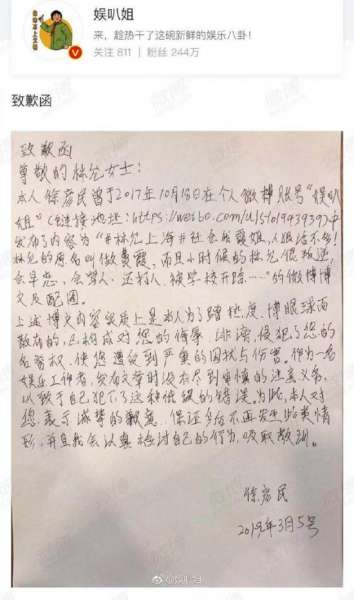 娱叭姐
来，趁热干了这碗新鲜的娱乐八卦！
关注 811 | 粉丝 244万
致歉函
致歉函
尊敬的林允女士：
本人徐彦民曾于2017年10月18日在个人微博账号"娱叭
姐"（链接地址：https://weibo.com/u/5101943939)中
发布了内容为"#林允上海#社会我霞姐，人狠话不多！
林允的原名叫做 霞，而且小时候的林允很叛逆，
会早恋，会骂人，还打人，被学校开除……"的微博博
文及配图。
上述博文内容实质上是本人为了蹭热度、博眼球而
散布的，已构成对您的侮辱、诽谤，侵犯了您的
名誉权，使您遭受到严重的困扰与伤害。作为一名
娱乐工作者，发布文章时没有尽到审慎的注意义务，
以致于自己犯下了这种低级的错误。为此，本人对
您表示诚挚的歉意，保证今后不再发生此类情
形，并且我会认真检讨自己的行为，吸取教训。
徐彦民
2019年3月5号